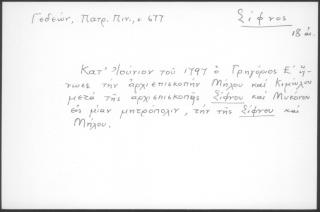 Γεδεών, Πατρ. Πιν., σ 677
Σίφνος
18 αι.
Κατ' Ἰούνιον τοῦ 1797 ὁ Γρηγόριος Ε' ἥ-
νωσε τὴν ἀρχιεπισκοπὴν Μήλου καὶ Κιμώλου
μετὰ τῆς ἀρχιεπισκοπῆς Σίφνου καὶ Μυκόνου
εἰς μίαν μητρόπολιν, τὴν τῆς Σίφνου καὶ
Μήλου.